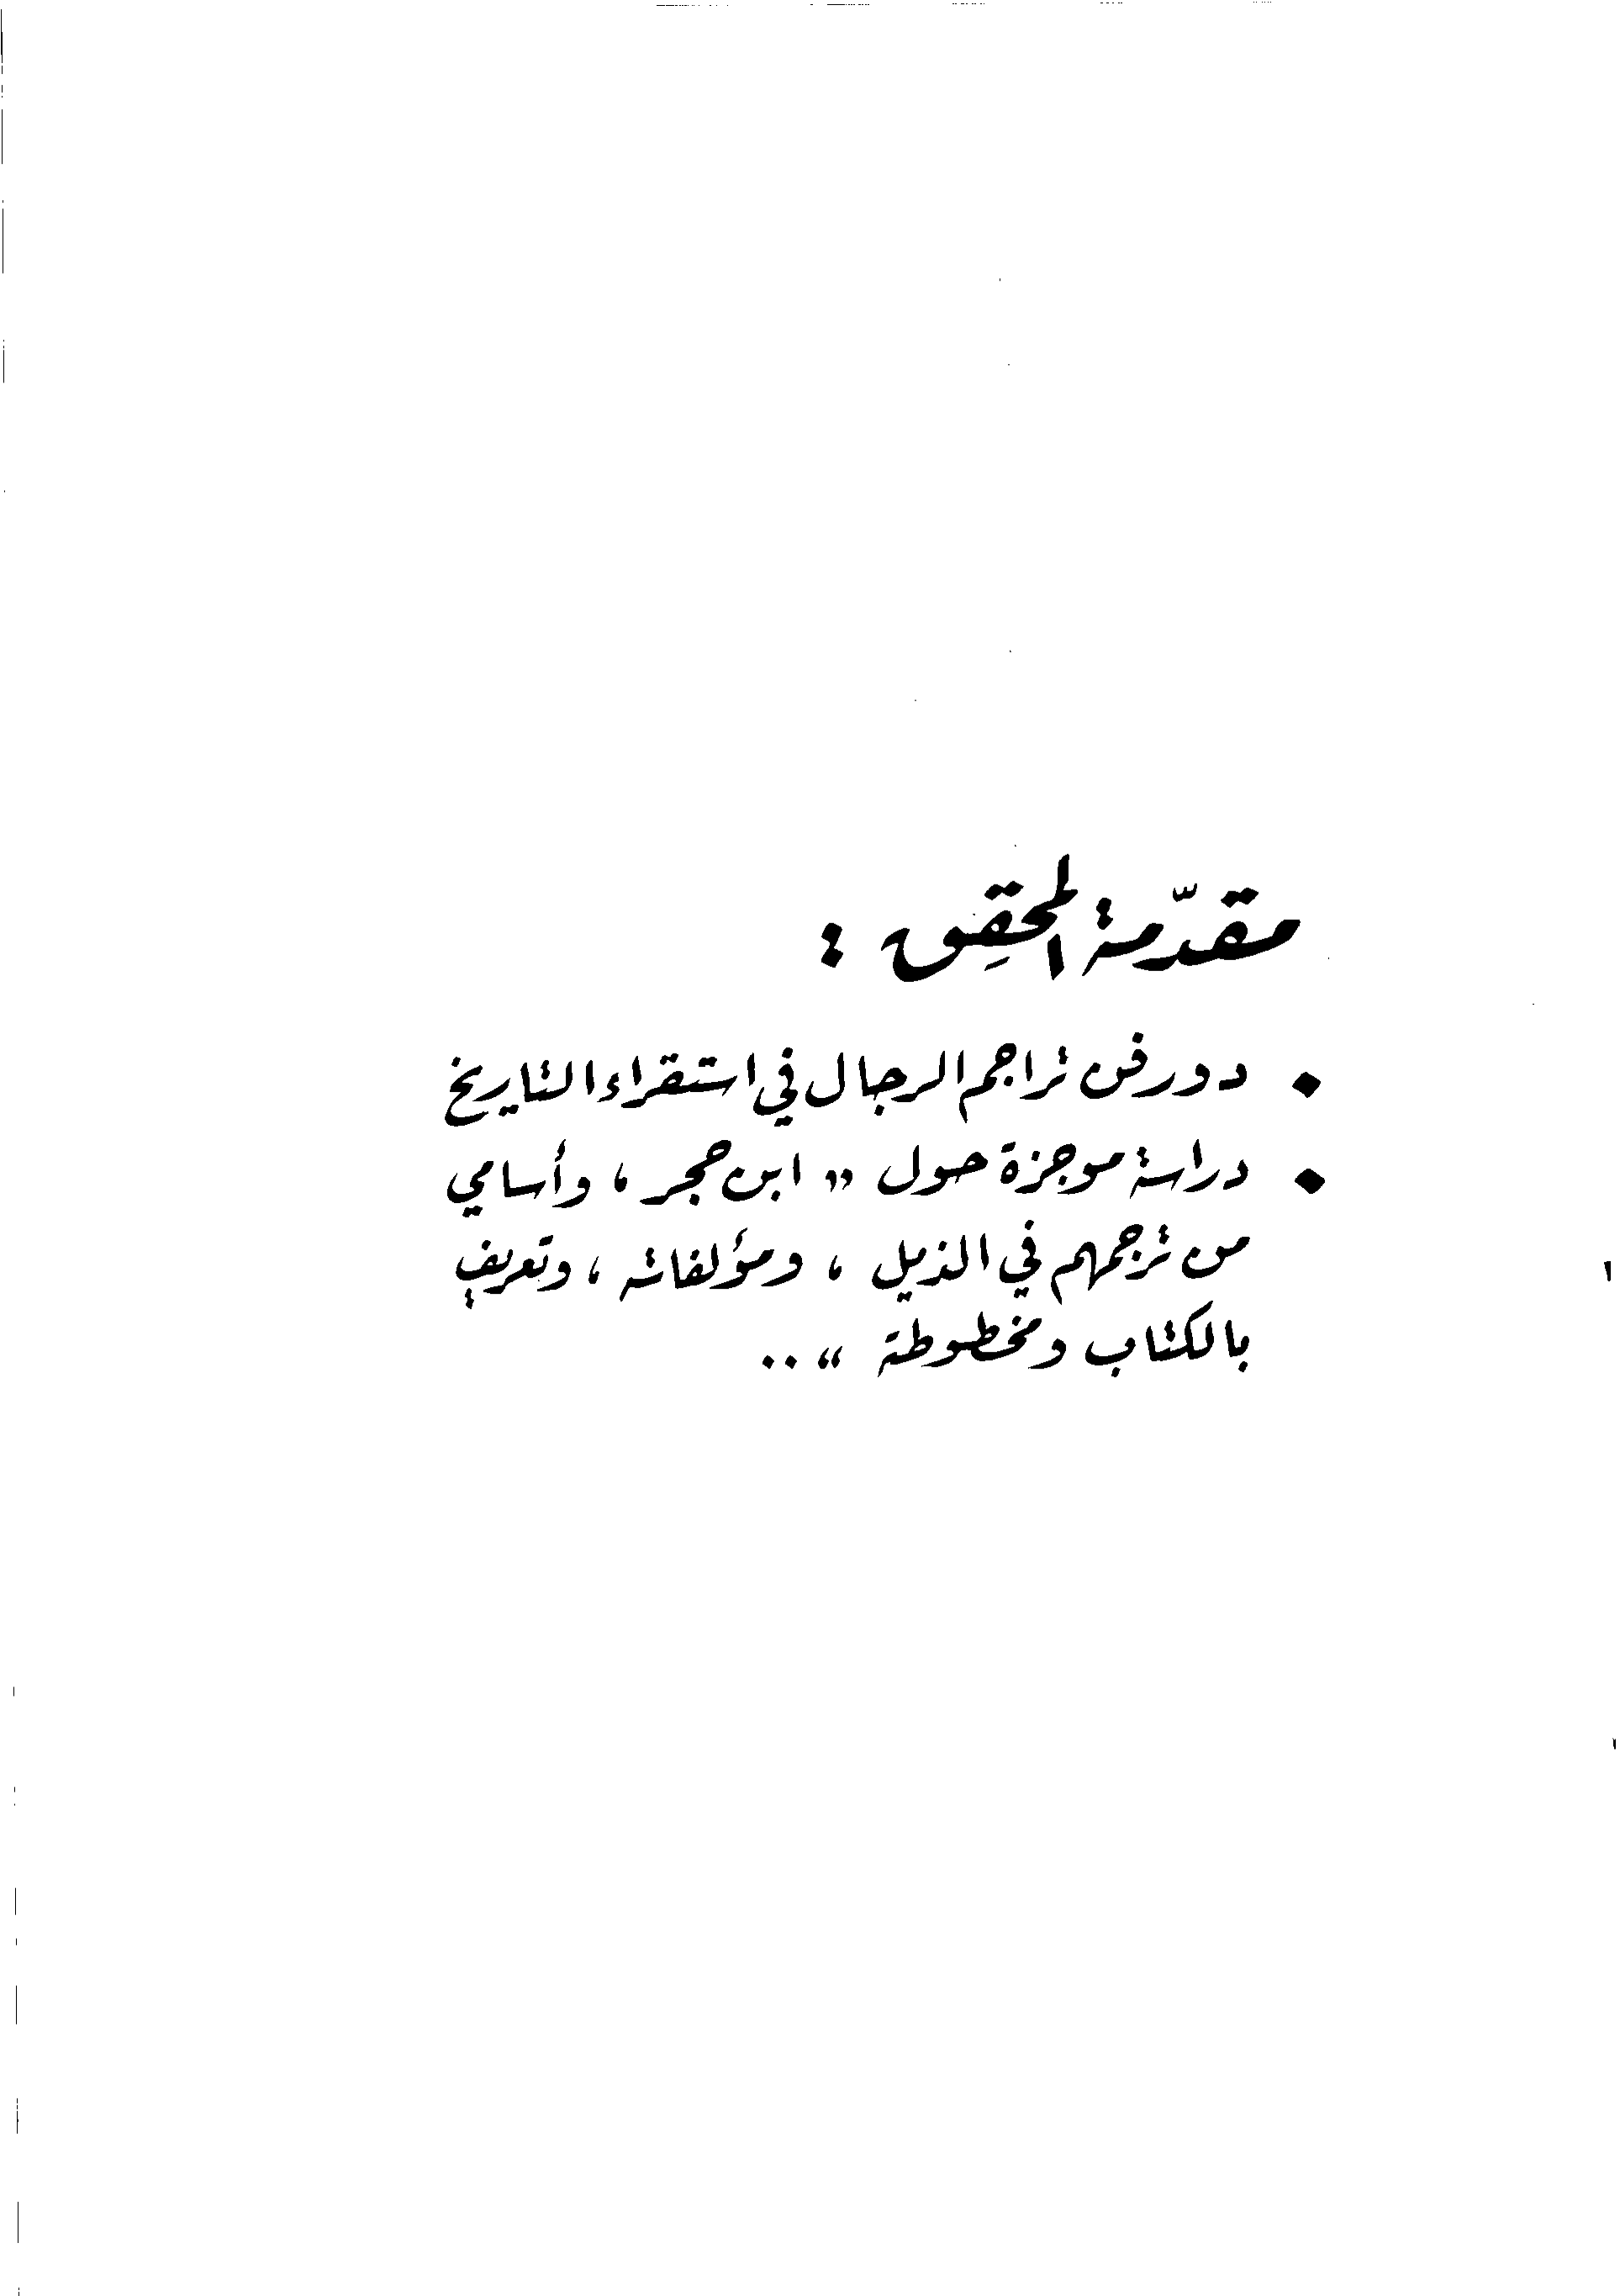 مقدّمة المحقِق :
• دور فن تراجم الرجال في استقراء التاريخ
• دراسة موجزة حول « ابن حجر ، وأسامي
من ترجمهم في الذيل ، ومؤلفاته ، وتعريفٍ
بالكتاب ومخطوطة » ..